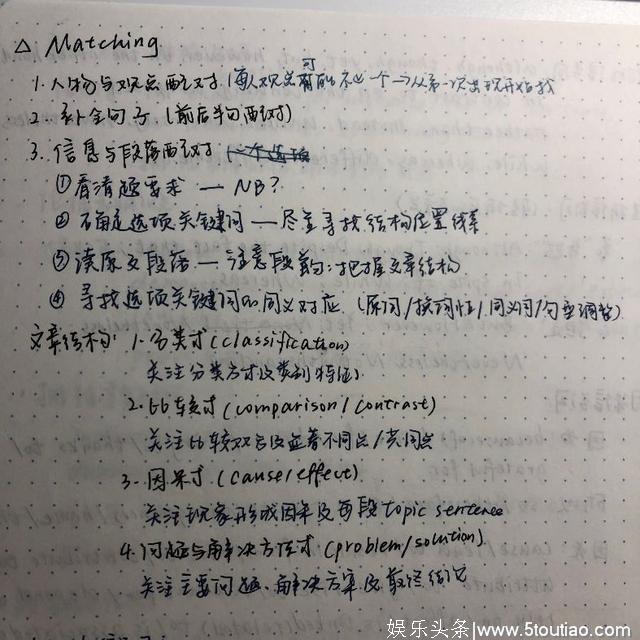 △ Matching
1. 人物与观点配对 (每人观点可能不止一个→从第一次出现开始找
2. 补全句子 (前后半句配对)
3. 信息与段落配对
① 看清题要求 — NB?
② 确定选项关键词 — 尽量寻找结构位置线索
③ 读原文段落 — 注意段首句:把握文章结构
④ 寻找选项关键词的同义对应 (原词/换词性/同义词/句型调整)
文章结构: 1. 分类式 (classification)
关注分类方式及类别特征)
2. 比较式 (comparison/contrast)
关注比较双方及显著不同点/共同点
3. 因果式 (cause/effect)
关注现象形成因果及首段topic sentence
4. 问题与解决方法式 (problem/solution)
关注主要问题、解决方案及最后结论
娱乐头条/www.5toutiao.com